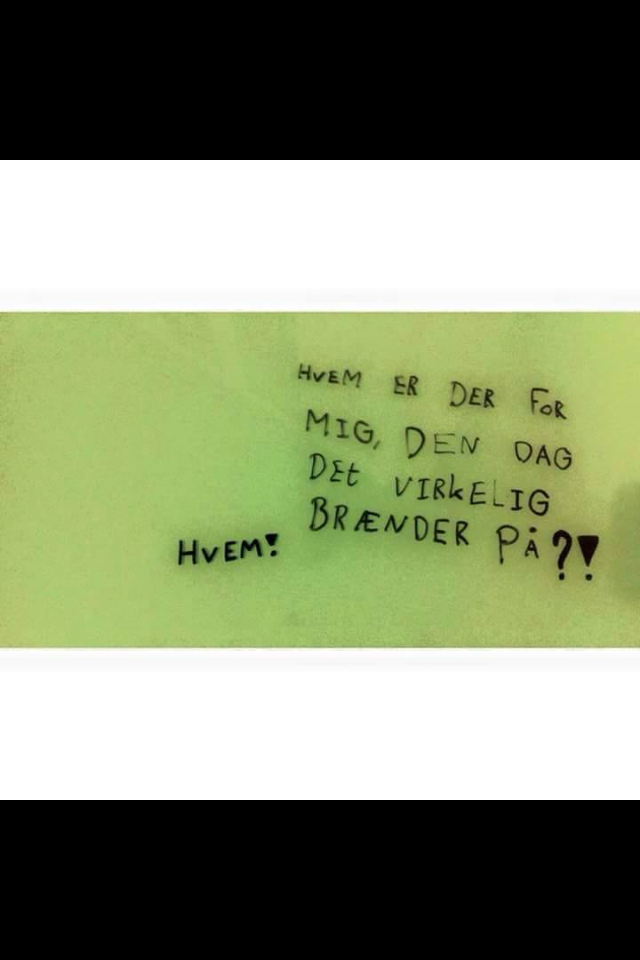 HVEM ER DER FOR
MIG, DEN DAG
DEt VIRkELIG
BRÆNDER PÅ?!
HVEM!